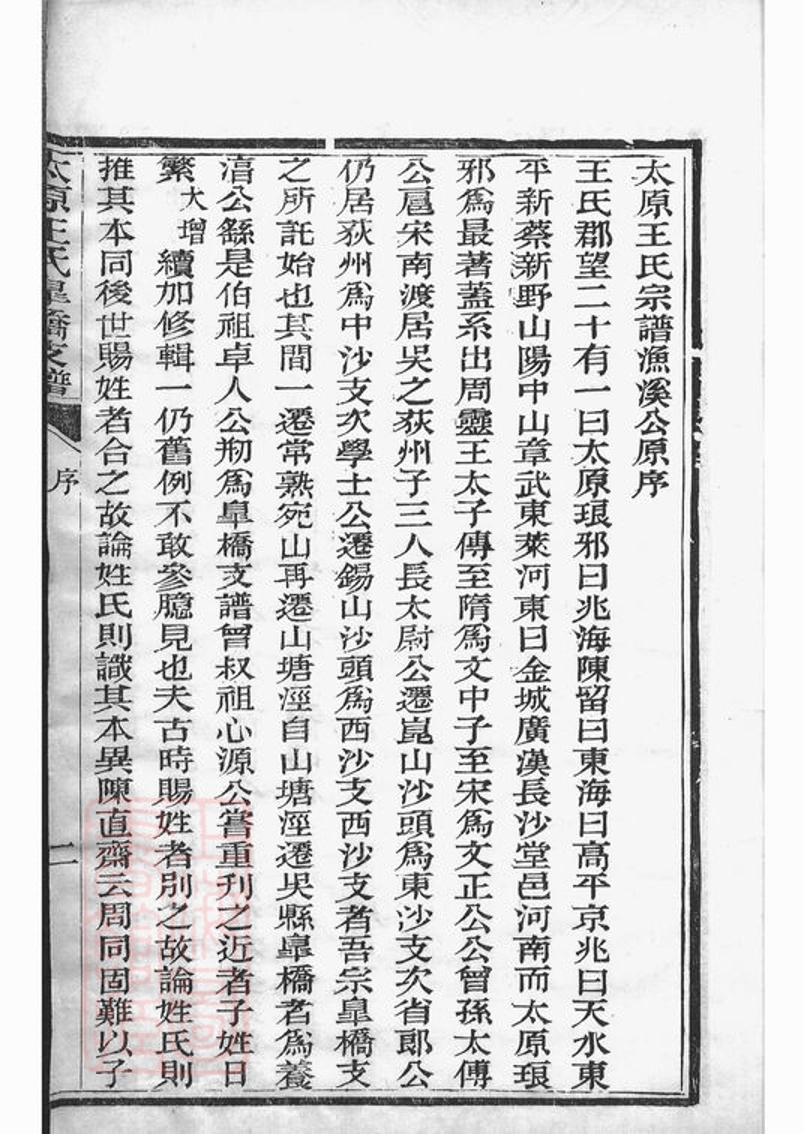 太原王氏宗譜漁溪公原序
王氏郡望二十有一曰太原琅邪曰兆海陳留曰東海曰高平京兆曰天水東
平新蔡新野山陽中山章武東萊河東曰金城廣漢長沙堂邑河南而太原琅
邪爲最著蓋系出周靈王太子傳至隋爲文中子至宋爲文正公公曾孫太傅
公扈宋南渡居吳之荻州子三人長太尉公遷崑山沙頭爲東沙支次省郎公
仍居荻州爲中沙支次學士公遷錫山沙頭爲西沙支西沙支者吾宗臯橋支
之所託始也其間一遷常熟宛山再遷山塘涇自山塘涇遷吳縣臯橋者爲養
湻公繇是伯祖卓人公剙爲臯橋支譜曾叔祖心源公嘗重刋之近者子姓日
繁大增續加修輯一仍舊例不敢參臆見也夫古時賜姓者別之故論姓氏則
推其本同後世賜姓者合之故論姓氏則識其本異陳直齋云周同固難以子
太原王氏臯橋支譜
序
二